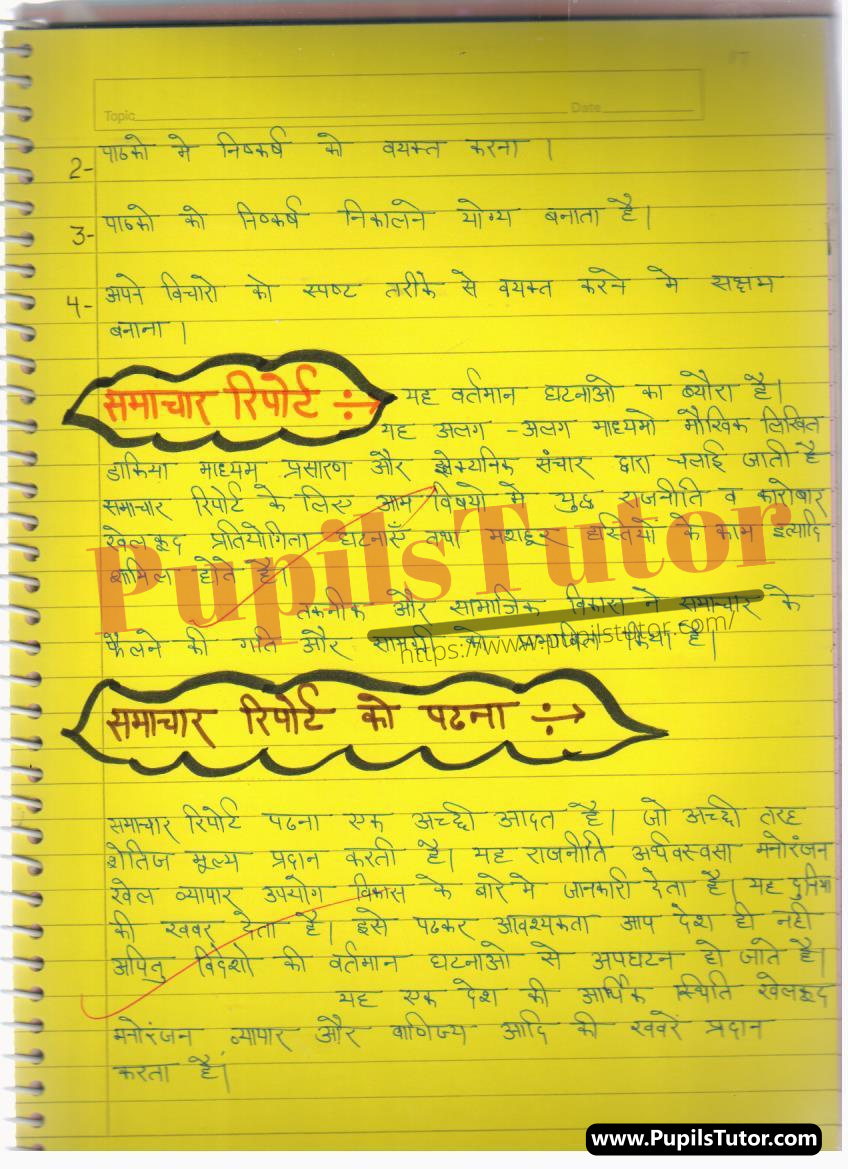 Topic Date
2- पाठको मे निष्कर्ष को वयक्त करना ।
3- पाठको को निष्कर्ष निकालने योग्य बनाता है।
4- अपने विचारो को स्पष्ट तरीके से वयक्त करने मे सक्षम
बनाना ।
समाचार रिपोर्ट ÷→ यह वर्तमान घटनाओ का ब्यौरा है।
यह अलग -अलग माध्यमो मौखिक लिखित
डाकिया माध्यम प्रसारण और संचार द्वारा चलाई जाती है
समाचार रिपोर्ट के लिए आम विषयो मे युद्ध राजनीति व कारोबार
खेलकूद प्रतियोगिता घटनाएँ तथा मशहूर हस्तियों के काम इत्यादि
शामिल होते है।
PupilsTutor
तकनीक और सामाजिक विकास ने समाचार के
फैलने की गति और सामग्री को प्रभावित किया है।
https://www.pupilstutor.com/
समाचार रिपोर्ट को पढना ÷→
समाचार रिपोर्ट पढना एक अच्छी आदत है। जो अच्छी तरह
शेतिज मूल्य प्रदान करती है। यह राजनीति अर्थवस्वसा मनोरंजन
खेल व्यापार उपयोग विकास के बारे मे जानकारी देता है। यह दुनिया
की खबर देता है। इसे पढकर आवश्यकता आप देश ही नही
अपितु विदेशो की वर्तमान घटनाओ से अपघटन हो जाते है।
यह एक देश की आर्थिक स्थिति खेलकूद
मनोरंजन व्यापार और वाणिज्य आदि की खबरें प्रदान
करता है।
www.PupilsTutor.com